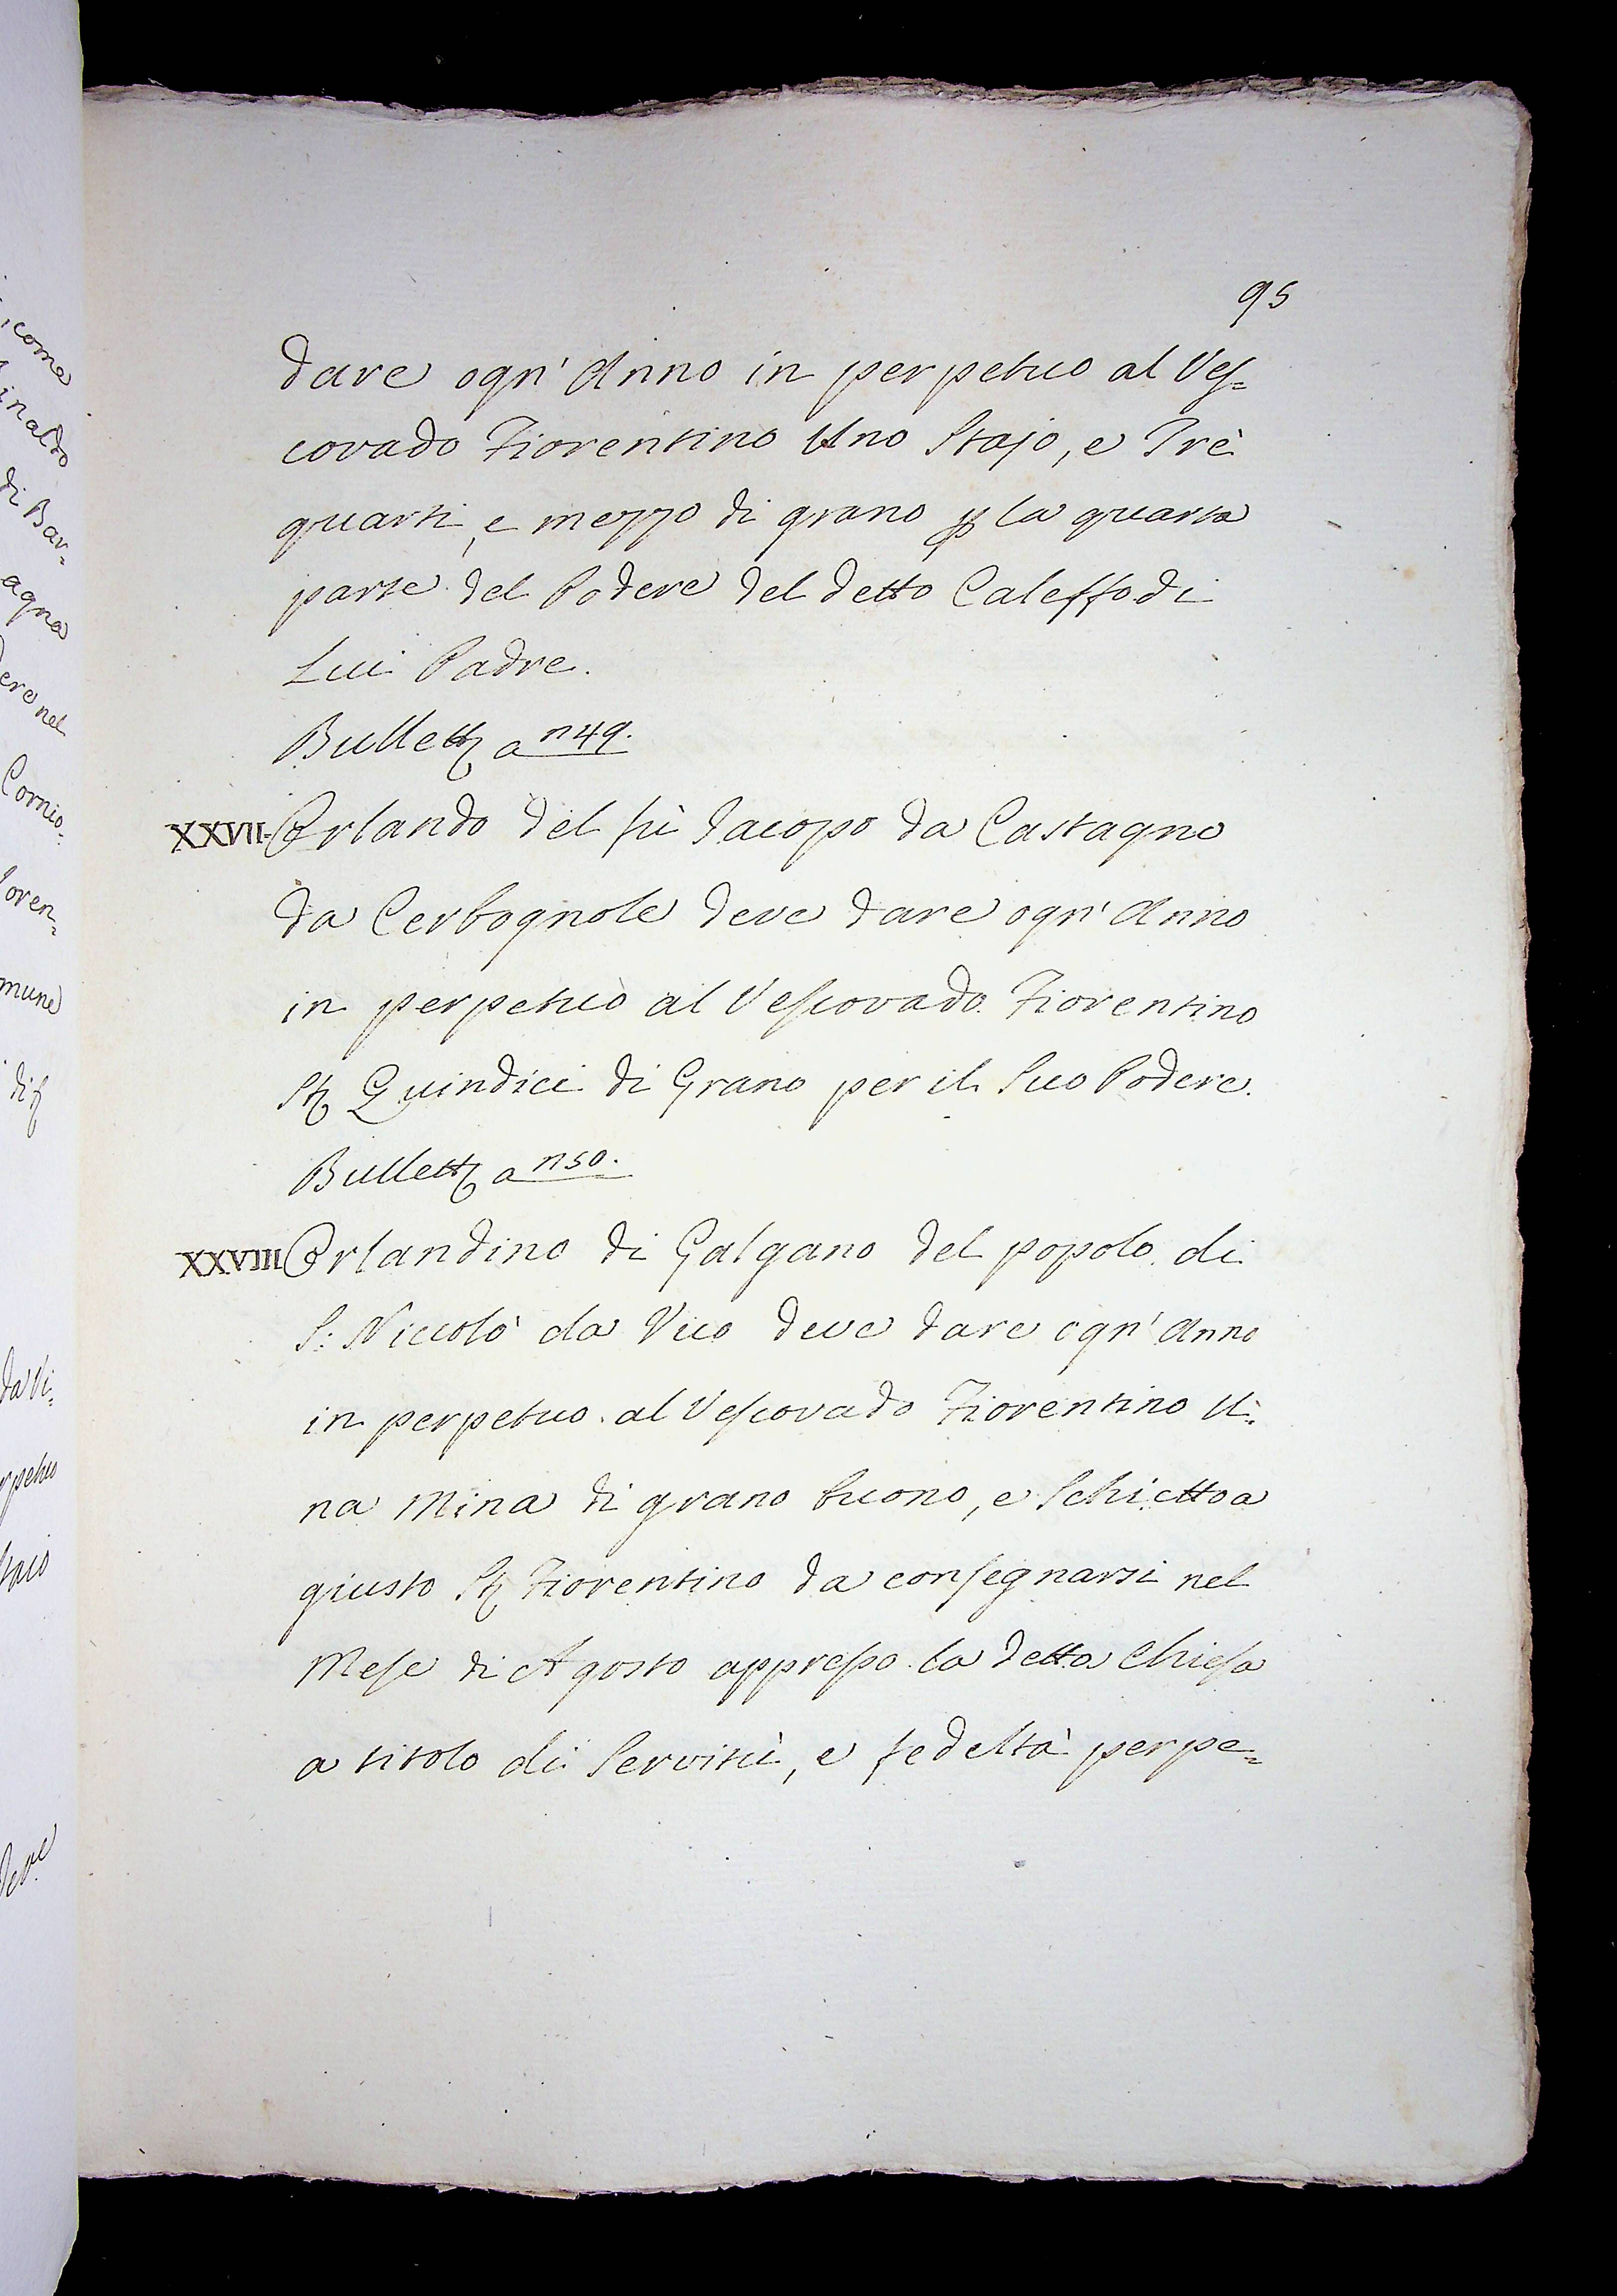 95
dare ogn' Anno in perpetuo al Ves=
covado Fiorentino Uno Stajo, e Trè
quarti, e mezzo di grano p la quarta
parte del Podere del detto Caleffo di
Lui Padre.
Bullett a n 49.
XXVII. Orlando del fù Iacopo da Castagno
da Cerbognole deve dare ogn' Anno
in perpetuo al Vescovado Fiorentino
St Quindici di Grano per il Suo Podere.
Bullett a n 50.
XXVIII Orlandino di Galgano del popolo di
S: Niccolò da Vico deve dare ogn' Anno
in perpetuo al Vescovado Fiorentino U=
na Mina di grano buono, e Schietto a
giusto St Fiorentino da consegnarsi nel
Mese di Agosto appresso la detta Chiesa
a titolo di Servitù, e fedeltà perpe=